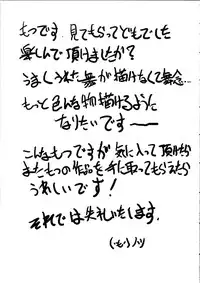 もつです 見てもらってどもでした
楽しんで頂けましたか?
うまくうれた 舞が描けなくて無念…
もっと色んな物描けるように
なりたいですー
こんなもつですが気に入って頂けたら
またもつの作品を手に取ってもらえたら
うれしいです!
それでは失礼いたします。